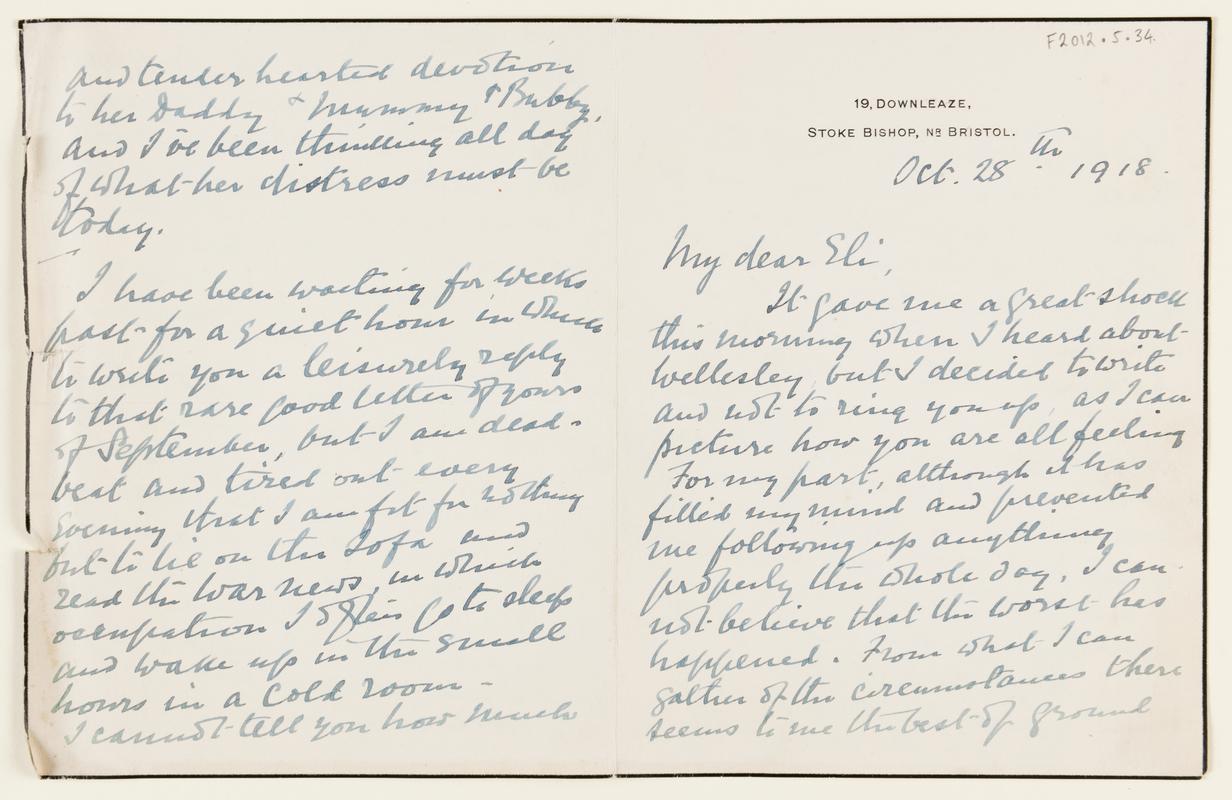 F2012.5.34.
19, DOWNLEAZE,
STOKE BISHOP, NR BRISTOL.
Oct. 28th 1918.
My dear Eli,
It gave me a great shock
this morning when I heard about
Wellesley, but I decided to write
and not to ring you up, as I can
picture how you are all feeling
For my part, although it has
filled my mind and prevented
me following up anything
properly the whole day, I can-
not believe that the worst has
happened. From what I can
gather of the circumstances there
seems to me the best of ground
and tender hearted devotion
to her Daddy & Mummy & Bubby,
and I've been thinking all day
of what her distress must be
today.
I have been waiting for weeks
past for a quiet hour in which
to write you a leisurely reply
to that rare good letter of yours
of September, but I am dead-
beat and tired out every
evening that I am fit for nothing
but to lie on the sofa and
read the war news, in which
occupation I often go to sleep
and wake up in the small
hours in a cold room -
I cannot tell you how much